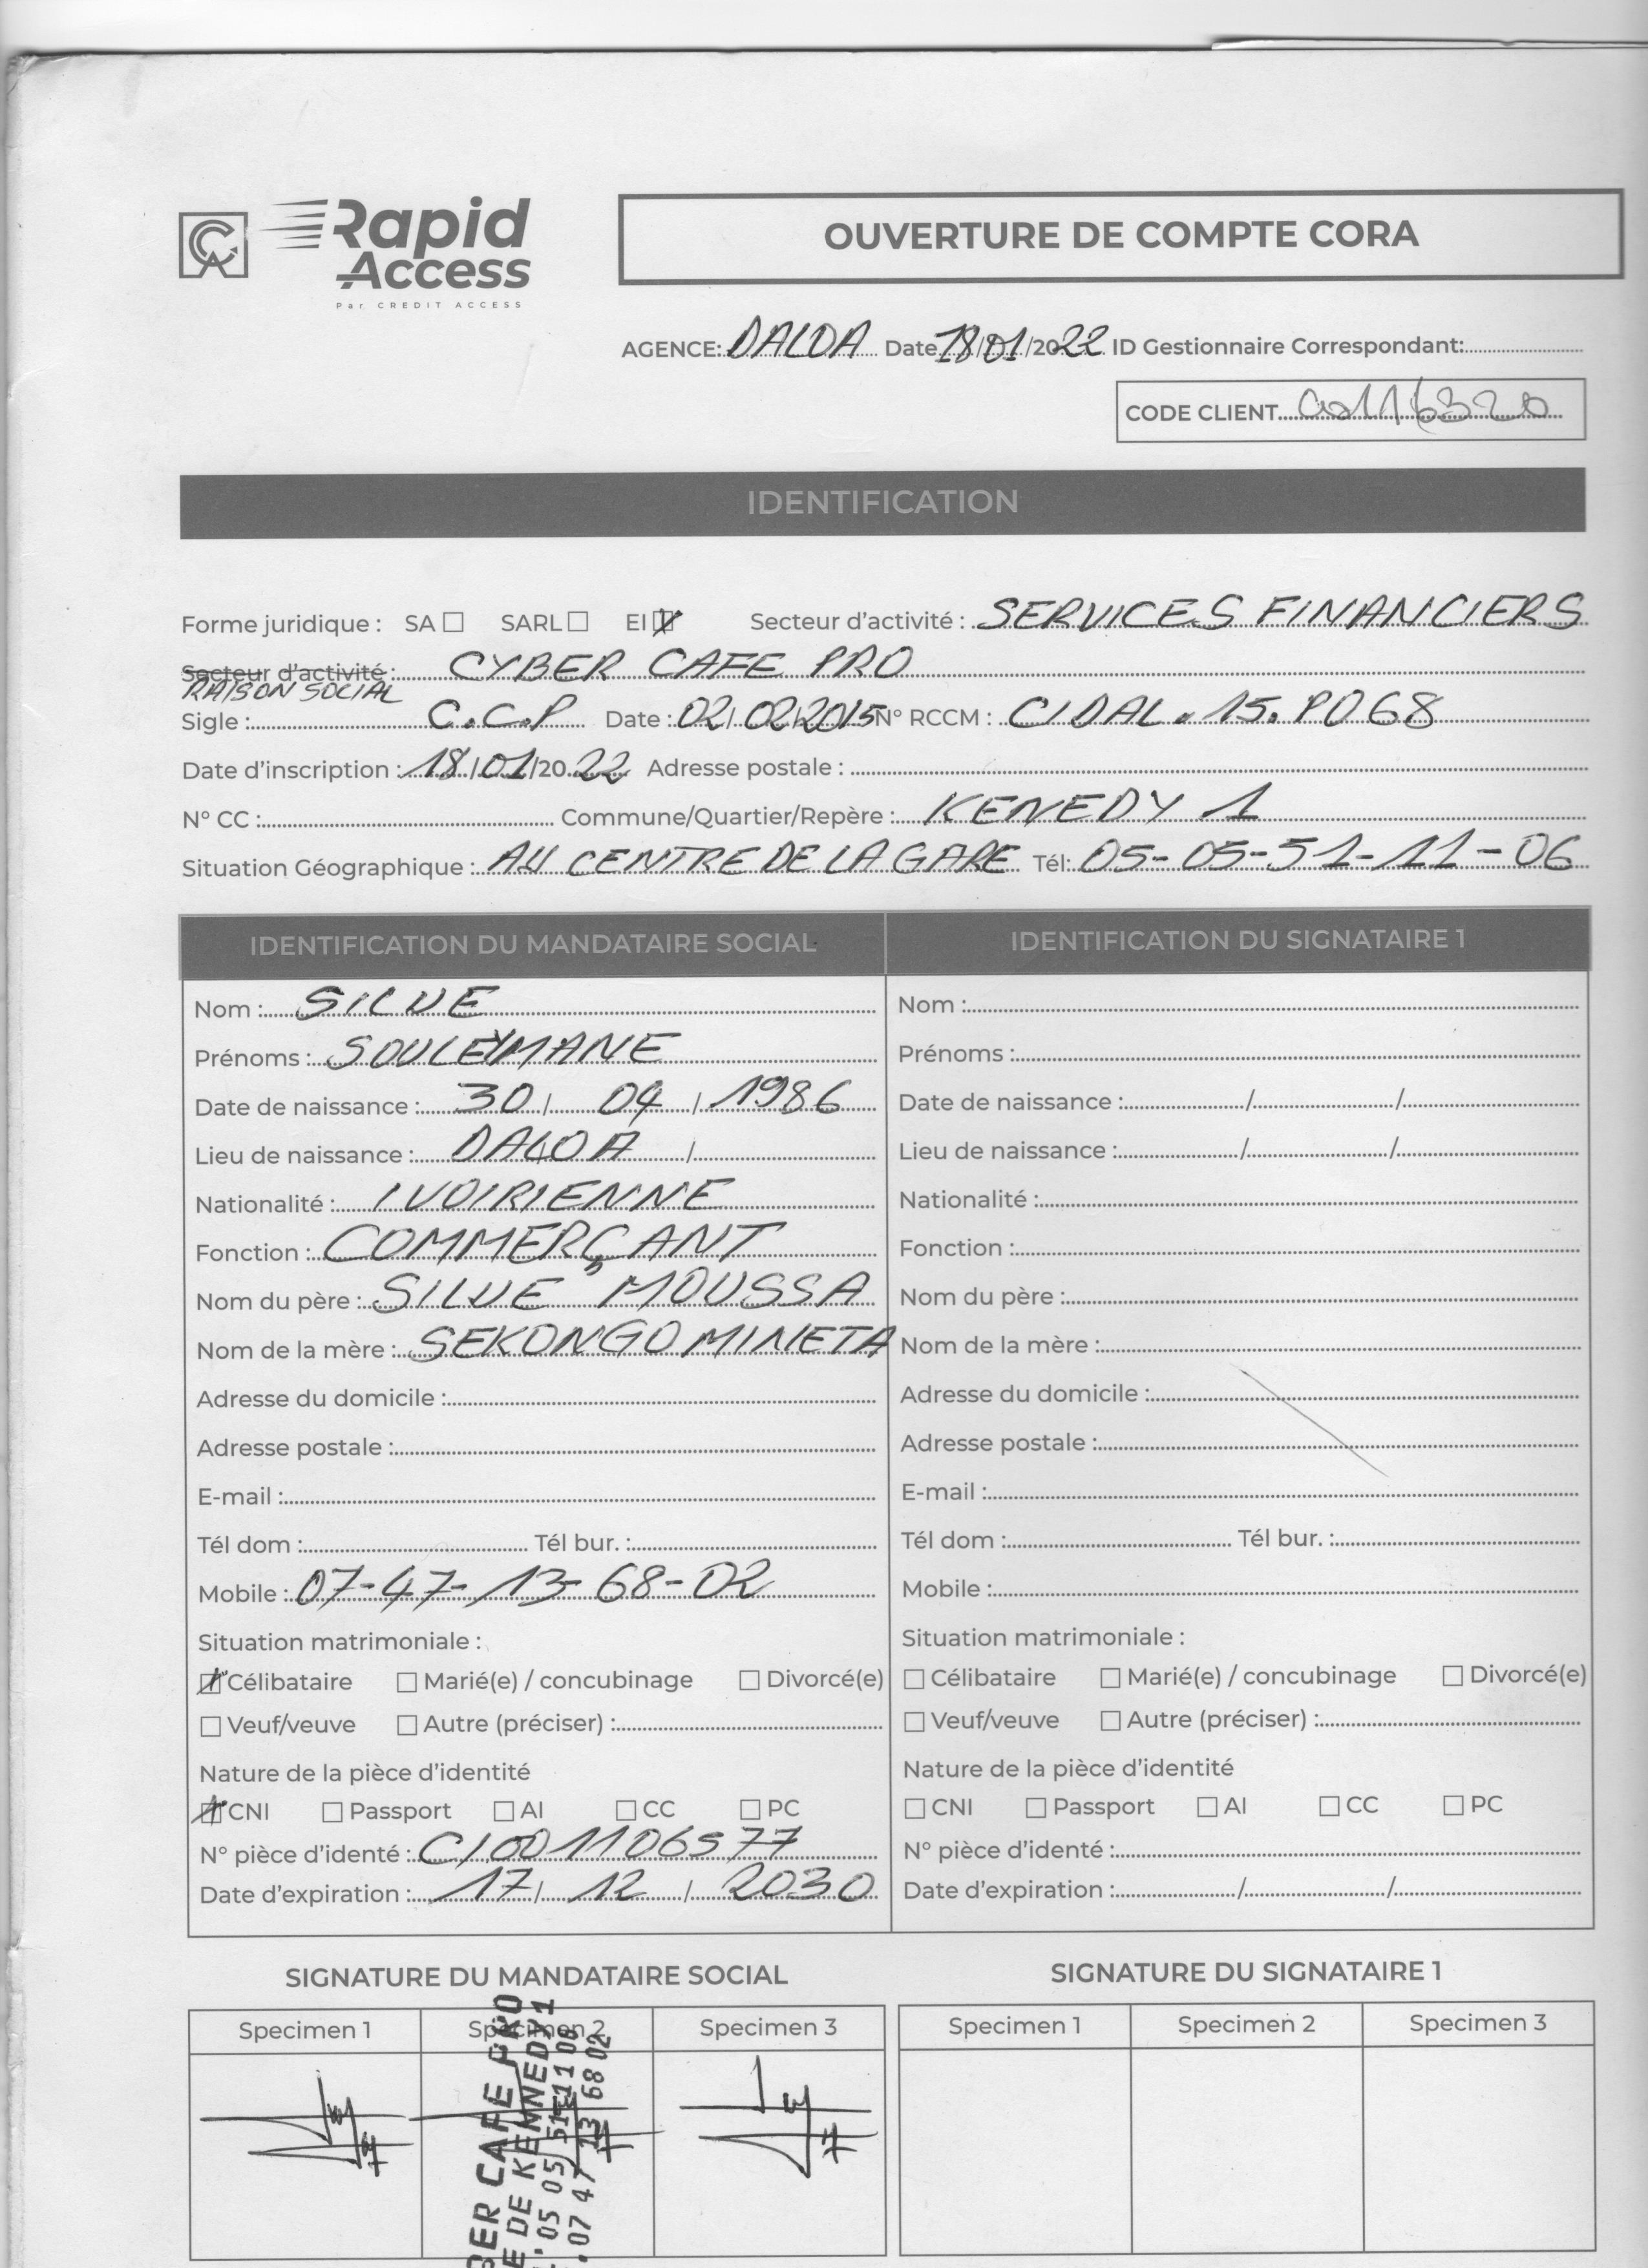 CA Rapid Access
Par CREDIT ACCESS
OUVERTURE DE COMPTE CORA
AGENCE: DALOA Date 18/01/2022 ID Gestionnaire Correspondant:
CODE CLIENT 00116320
IDENTIFICATION
Forme juridique : SA ☐ SARL ☐ EI ☒ Secteur d'activité : SERVICES FINANCIERS
Secteur d'activité : CYBER CAFE PRO
RAISON SOCIAL
Sigle : C.C.P Date : 02/02/2015 N° RCCM : CIDAL.15.P068
Date d'inscription : 18/01/2022 Adresse postale :
N° CC : Commune/Quartier/Repère : KENEDY 1
Situation Géographique : AU CENTRE DE LA GARE Tél: 05-05-51-11-06
IDENTIFICATION DU MANDATAIRE SOCIAL
Nom : SILUE
Prénoms : SOULEYMANE
Date de naissance : 30 / 04 / 1986
Lieu de naissance : DALOA /
Nationalité : IVOIRIENNE
Fonction : COMMERÇANT
Nom du père : SILUE MOUSSA
Nom de la mère : SEKONGO MINETA
Adresse du domicile :
Adresse postale :
E-mail :
Tél dom : Tél bur. :
Mobile : 07-47-13-68-02
Situation matrimoniale :
☒ Célibataire ☐ Marié(e) / concubinage ☐ Divorcé(e)
☐ Veuf/veuve ☐ Autre (préciser) :
Nature de la pièce d'identité
☒ CNI ☐ Passport ☐ AI ☐ CC ☐ PC
N° pièce d'identé : CI001106577
Date d'expiration : 17 / 12 / 2030
IDENTIFICATION DU SIGNATAIRE 1
Nom :
Prénoms :
Date de naissance : / /
Lieu de naissance : / /
Nationalité :
Fonction :
Nom du père :
Nom de la mère :
Adresse du domicile :
Adresse postale :
E-mail :
Tél dom : Tél bur. :
Mobile :
Situation matrimoniale :
☐ Célibataire ☐ Marié(e) / concubinage ☐ Divorcé(e)
☐ Veuf/veuve ☐ Autre (préciser) :
Nature de la pièce d'identité
☐ CNI ☐ Passport ☐ AI ☐ CC ☐ PC
N° pièce d'identé :
Date d'expiration : / /
SIGNATURE DU MANDATAIRE SOCIAL
Specimen 1 Specimen 2 Specimen 3
BER CAFE PRO
E DE KENNEDY 1
05 05 51 11 06
07 47 13 68 02
SIGNATURE DU SIGNATAIRE 1
Specimen 1 Specimen 2 Specimen 3